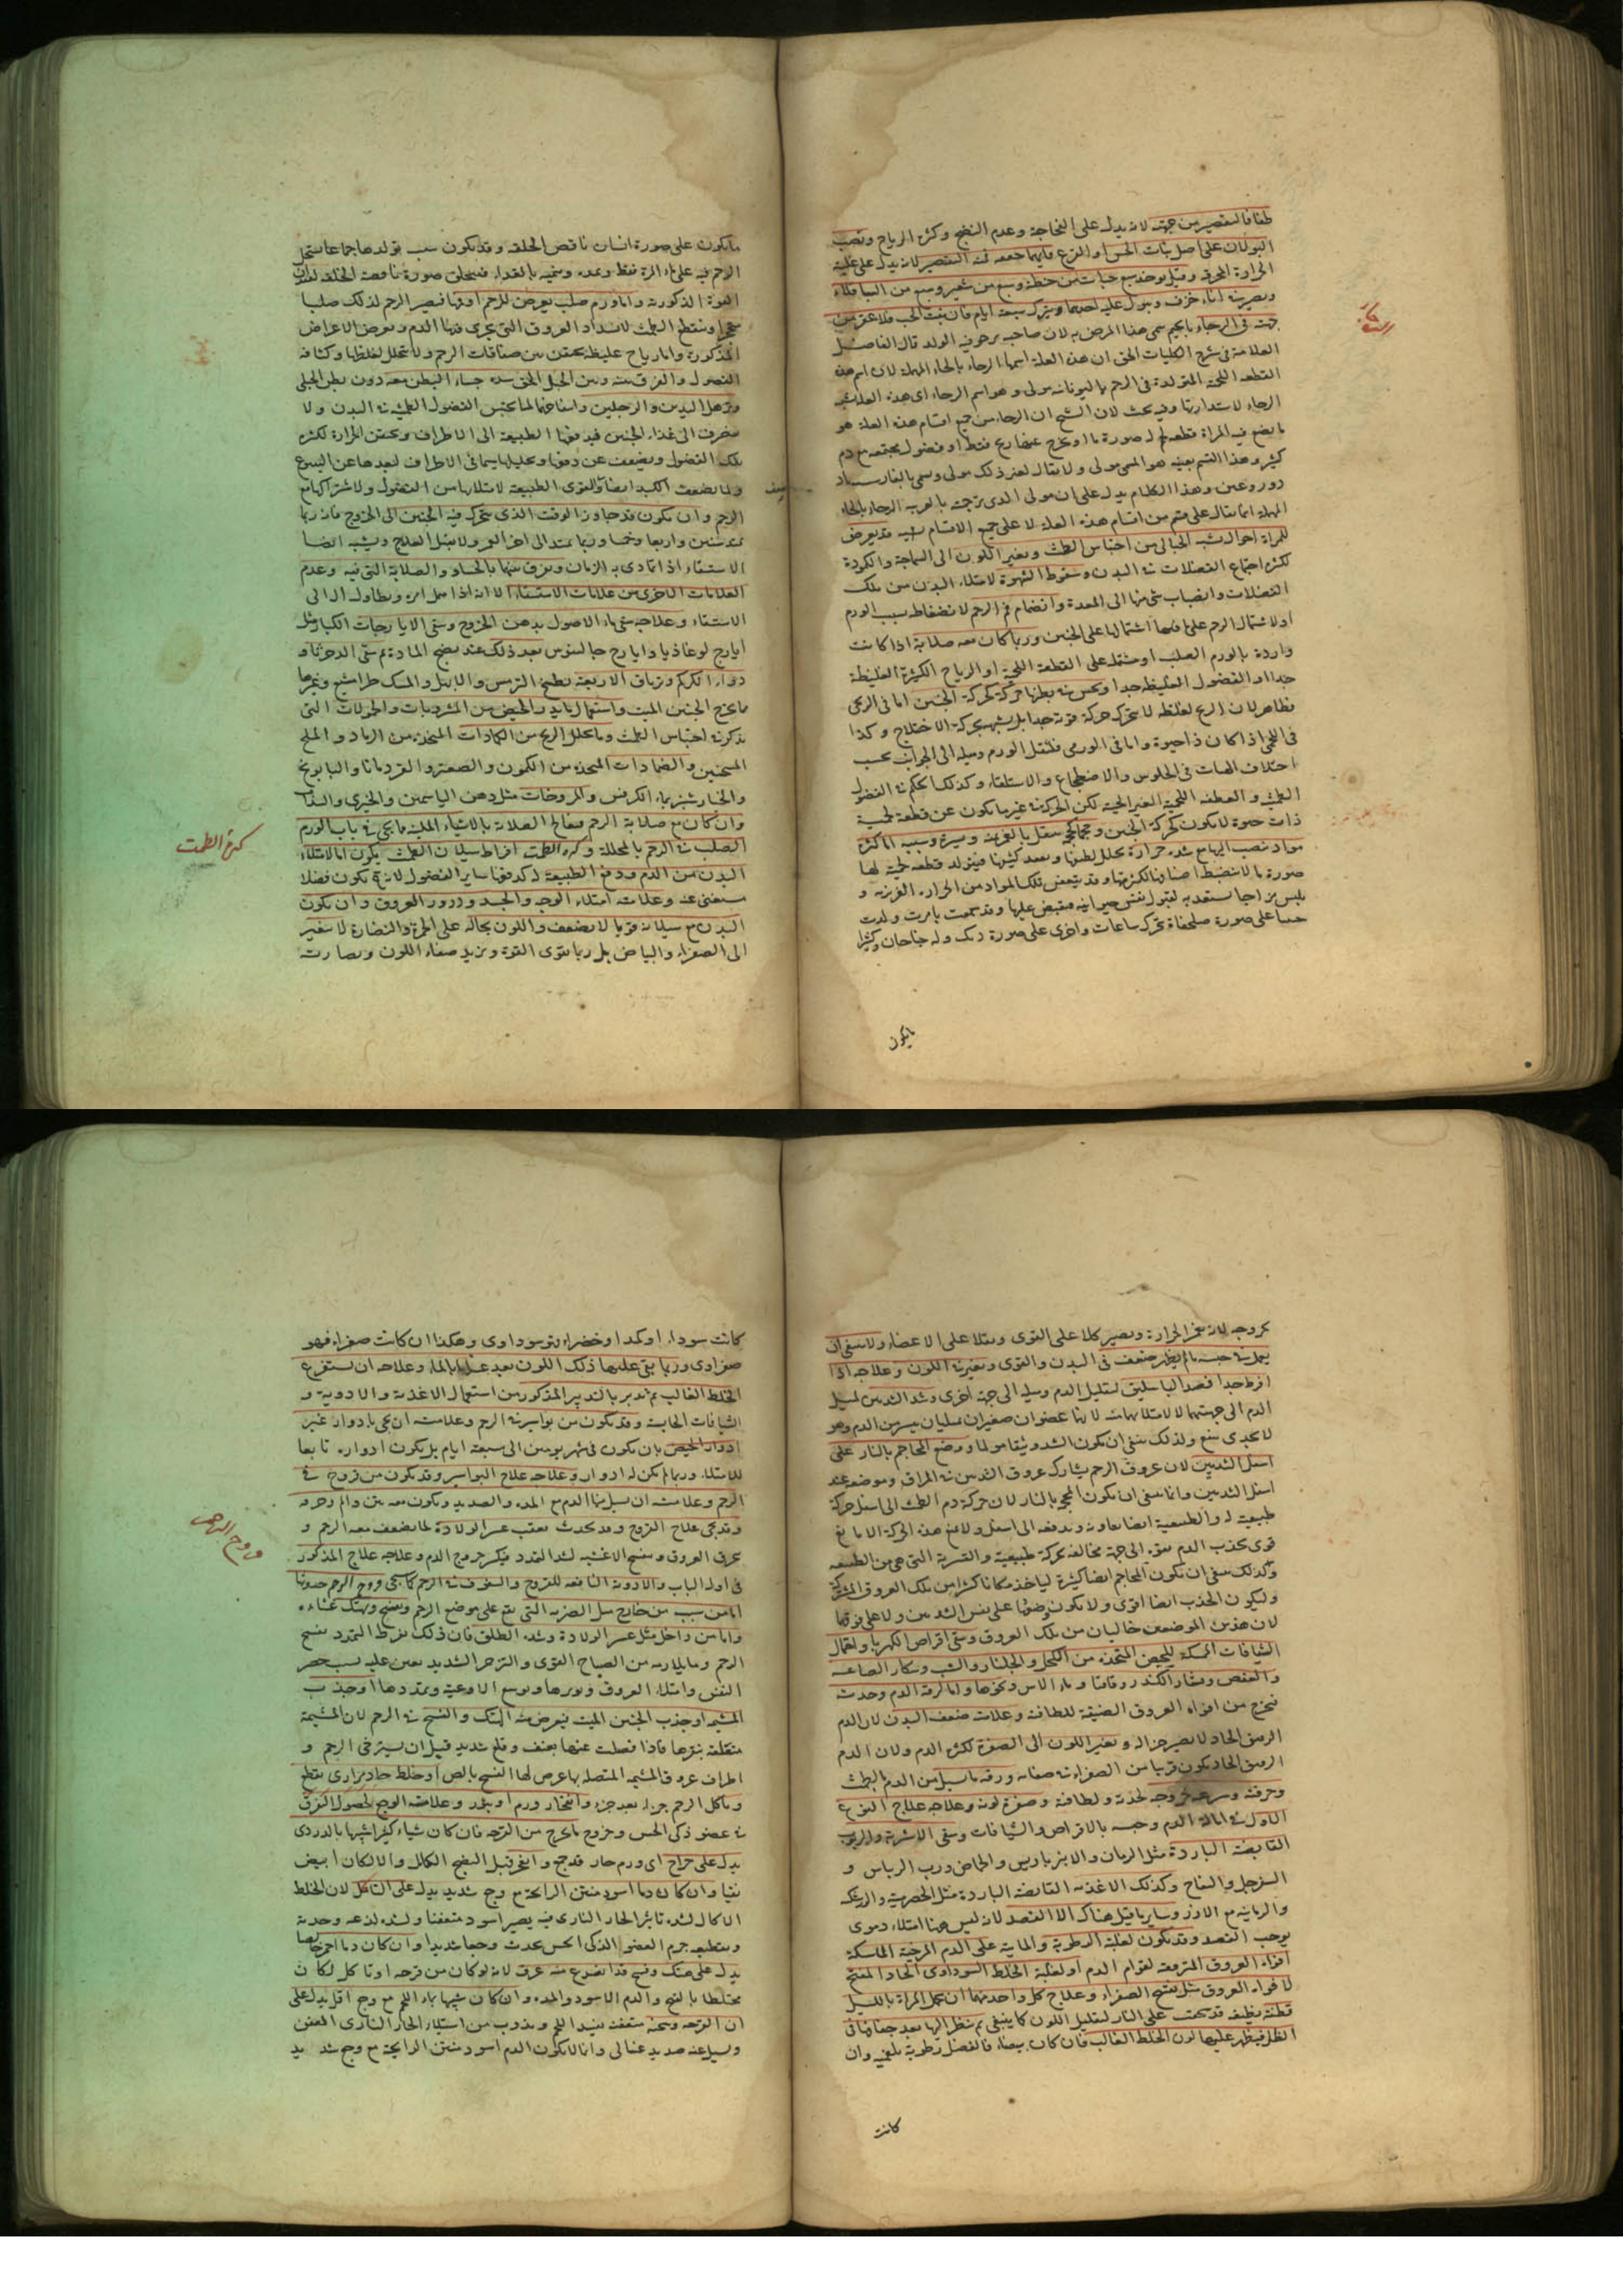 طفا فالتقصير من جهته لانه يدل على الفجاجة وعدم النضج وكثرة الرياح ويصب
البولان على اصل نبات الخس او القرع فايهما جففه فمنه التقصير لانه يدل على غلبة
الحرارة المحرقة وقيل يوخذ سبع حبات من حنطة وسبع من شعير وسبع من الباقلاء
ويصير في اناء خزف ويبول عليه احدهما ويترك سبعة ايام فان نبت الحب فلا عقر من
جهته في الرجاء بالجيم سمى هذا المرض به لان صاحبه يرجو فيه الولد قال الفاضل
العلامة في شرح الكليات الحق ان هذه العلة اسمها الرحاء بالحاء المهملة لان اسم هذه
القطعة اللحمية المتولدة في الرحم باليونانية مولى وهو اسم الرحاء اى هذه العلة
الرحاء لاستدارتها وفيه بحث لان الشيخ ان الرحاء من جميع اقسام هذه العلة هو
ما تضع فيه المراة قطعة لحم لا صورة لها او تخرج عنها ريح فقط او فضول مجتمعة مع دم
كثير وهذا القسم بعينه هو المسمى مولى ولا يقال لغير ذلك مولى وسمى بالفارسية باد
دروغين وهذا الكلام يدل على ان مولى الذى ترجمته بالعربية الرحاء بالحاء
المهملة انما يقال على قسم من اقسام هذه العلة لا على جميع الاقسام شبيه قد يعرض
للمراة احوال تشبه الحبالى من احتباس الطمث وتغير اللون الى السماجة والكودة
لكثرة اجتماع الفضلات في البدن وسقوط الشهوة لامتلاء البدن من تلك
الفضلات وانصباب شئ منها الى المعدة وانضمام فم الرحم لانضغاط بسبب الورم
او لاشتمال الرحم على ما فيها اشتمالها على الجنين وربما كان معه صلابة اذا كانت
واردة بالورم الصلب او مشتملة على القطعة اللحمية او الرياح الكثيرة الغليظة
جدا او الفضول الغليظة جدا ويحس في بطنها حركة كحركة الجنين اما في الريحى
فظاهر لان الريح لغلظه لا يتحرك حركة قوية جدا بل يشبه بحركة الاختلاج وكذا
في اللحمى اذا كان ذا حيوة واما في الورمى فلثقل الورم وميله الى الجوانب بحسب
اختلاف الهيات في الجلوس والاضطجاع والاستلقاء وكذلك الحكم في الفضول
الطمثية والقطعة اللحمية الغير الحية لكن الحركة في غير ما يكون عن قطعة لحمية
ذات حيوة لا يكون كحركة الجنين
مواد تنصب اليها مع شدة حرارة تحلل لطيفها وتعقد كثيفها فيتولد قطعة لحمية لها
صورة ما لا تنضبط اصنافها لكثرتها وقد يتعفن تلك المواد من الحرارة الغريزية و
يلبس مزاجا يستعد به لقبول نفس حيوانية فتفيض عليها وقد سمعت بامراة ولدت
جسما على صورة سلحفاة تحرك ساعات واخرى على صورة ديك وله جناحان وكثيرا
ما يكون
ما يكون على صورة انسان ناقص الخلقة وقد يكون سبب تولدها جماعا يشتمل
الرحم فيه على ماء المراة فقط ويمده وينميه بالغذاء فيتخلق صورة ناقصة الخلقة لفقدان
القوة الذكورية واما ورم صلب يعرض للرحم او فيها فيصير الرحم لذلك صلبا
متحجرا وينقطع الطمث لانسداد العروق التي يجرى فيها الدم ويعرض الاعراض
المذكورة واما رياح غليظة يحتقن بين صفاقات الرحم ولا يتحلل لغلظها وكثافة
الفضول والفرق بينه وبين الحبل الحق شدة جساء البطن معه دون بطن الحبلى
وترهل اليدين والرجلين وانتفاخهما لما يحتبس الفضول الطمثية في البدن ولا
ينصرف الى غذاء الجنين فيدفعها الطبيعة الى الاطراف ويحتقن الحرارة لكثرة
تلك الفضول ويضعف عن دفعها وتحليلها سيما في الاطراف لبعدها عن الينبوع
ولما يضعف الكبد ايضا والقوى الطبيعية لامتلائها من الفضول ولاشتراكها مع
الرحم وان يكون قد جاوز الوقت الذى يتحرك فيه الجنين الى الخروج فانه ربما
يمتد سنين واربعا وخمسا وربما يمتد الى اخر العمر ولا يقبل العلاج ويشبه ايضا
الاستسقاء اذا تمادى به الزمان ويفرق بينهما بالجساو والصلابة التي فيه وعدم
العلامات الاخرى من علامات الاستسقاء الا انه اذا اهمل امره ويطاول ال الى
الاستسقاء وعلاجه سقى ماء الاصول بدهن الخروع وسقى الايارجات الكبار مثل
ايارج لوغاذيا وايارج جالينوس بعد ذلك عند نضج المادة ثم سقى الدحمرثا و
دواء الكركم وترياق الاربعة بطبيخ الترمس والابهل والمسك طرامشيع ونحوها
مما يخرج الجنين الميت واستعمال ما يدر الحيض من المشروبات والحمولات التي
يذكر في احتباس الطمث وما يحلل الريح من الكمادات المتخذة من الرماد والملح
المسخنين والضمادات المتخذة من الكمون والصعتر والقردمانا والبابونج
والخيارشنبر بماء الكرفس والمروخات مثل دهن الياسمين والخيرى والسذاب
وان كان مع صلابة الرحم فيعالج الصلابة بالاشياء الملينة مما يجئ في باب الورم
الصلب في الرحم بالمحللة وكثرة الطمث افراط سيلان الطمث يكون اما لامتلاء
البدن من الدم ودفع الطبيعة له كدفعها ساير الفضول لانه يكون فضلا
يستغنى عنه وعلامته امتلاء الوجه والجسد ودرور العروق وان يكون
البدن مع سيلانه قويا لا يضعف واللون بحاله على الحمرة والنضارة لا يتغير
الى الصفراء والبياض بل ربما يقوى القوة ويزيد صفاء اللون ونضارته
كثرة الطمث
لخروجه لانه يغمر الحرارة ويصير كلا على القوى وثقلا على الاعضاء ولا ينبغي ان
يعمل في حبسه ما لم يظهر ضعف في البدن والقوى وتغير في اللون وعلاجه اذا
افرط جدا فصد الباسليق لتقليل الدم وميله الى جهة اخرى وشد الثديين لميل
الدم الى جهتهما لا لامتلائهما منه لانهما عضوان صغيران يمتليان بيسير من الدم وهو
لا يجدى بنفع ولذلك ينبغي ان يكون الشد وثيقا مولما ووضع المحاجم بالنار على
اسفل الثديين لان عروق الرحم يشارك عروق الثديين في المراق وموضعه عند
اسفل الثديين وانما ينبغي ان يكون المحجم بالنار لان حركة دم الطمث الى اسفل حركة
طبيعية له والطبيعة ايضا تعاونه وتدفعه الى اسفل ولا يمنع هذه الحركة الا ما يقع
قوى يجذب الدم بقوة الى جهة مخالفة بحركة طبيعية والقسرية التي هي من الطبيعة
وكذلك ينبغي ان يكون المحاجم ايضا كثيرة لياخذ مكانا كثيرا من تلك العروق المشتركة
وليكون الجذب ايضا اقوى ولا يكون وضعها على نفس الثديين ولا على فوقهما
لان هذين الموضعين خاليان من تلك العروق وسقى اقراص الكهربا واحتمال
الشيافات الممسكة للحيض المتخذة من الكحل والجلنار والشب وسكار الصاغة
والعفص وقشار الكندر واقاقيا وماء الاس ونحوها واما لرقة الدم وحدته
فيخرج من افواه العروق الضيقة للطافته وعلامته ضعف البدن لان الدم
الرقيق الحاد لا يصير جزا له وتغير اللون الى الصفرة لكثرة الدم ولان الدم
الرقيق الحاد يكون قريبا من الصفراء في صفاته ورقة ما يسيل من الدم بالطمث
وحرقته وسرعة خروجه لحدته ولطافته وصفرة لونه وعلاجه علاج النوع
الاول في امالة الدم وحبسه بالاقراص والشيافات وسقى الاشربة والربوب
القابضة الباردة مثل الرمان والانبرباريس والحماض ورب الريباس و
السفرجل والتفاح وكذلك الاغذية القابضة الباردة مثل الحصرمية والزرشكية
والرمانية مع الارز وساير ما قيل هناك الا الفصد لانه ليس هنا امتلاء دموى
يوجب الفصد وقد يكون لغلبة الرطوبة والمائية على الدم المرخية الماسكة
افواه العروق المرققة لقوام الدم او لغلبة الخلط السوداوى الحاد المفتح
لافواه العروق مثل تفتيح الصفراء وعلاج كل واحد منهما ان تحمل المراة بالليل
قطنة نظيفة قد سحقت على النار لتقليل اللون كما ينبغي ثم ينظر اليها بعد جفافها في
الظل فيظهر عليها لون الخلط الغالب فان كان بيضاء فالفضل رطوبة بلغمية وان
كانت
كانت سوداء او كمدا او خضراء فهو سوداوى وهكذا ان كانت صفراء فهو
صفراوى وربما بقى عليها ذلك اللون بعد غسلها بالماء وعلاجه ان يستفرغ
الخلط الغالب ثم تدبر بالتدبير المذكور من استعمال الاغذية والادوية و
الشيافات الحابسة وقد يكون من بواسير في الرحم وعلامته ان يجئ بادوار غير
ادوار الحيض بان يكون في شهر يومين الى سبعة ايام بل يكون ادواره تابعا
للامتلاء وربما لم يكن له ادوار وعلاجه علاج البواسير وقد يكون من قروح في
الرحم وعلامته ان يسيل منها الدم مع المدة والصديد ويكون معه نتن والم وحرقة
وقد يجئ علاج القروح وقد يحدث بعقب عسر الولادة لما يضعف معه الرحم و
يحرق العروق وينسج الاغشية لشدة التمدد فيكثر خروج الدم وعلاجه علاج المذكور
في اول الباب والادوية النافعة للقروح والسقوف في الرحم كما يجئ قروح الرحم حدوثها
اما من سبب من خارج مثل الضربة التي يقع على موضع الرحم ويفسخ ويهتك غشاءه
واما من داخل مثل عسر الولادة وشدة الطلق فان ذلك لفرط التمدد يفسخ
الرحم وما يلازمه من الصياح القوى والتزحر الشديد يعين عليه بسبب حصر
النفس وامتلاء العروق وتوترها وتوسع الاوعية وتمددها او جذب
المشيمة او جذب الجنين الميت فيعرض منه الهتك والفسخ في الرحم لان المشيمة
متعلقة بنقرها فاذا فصلت عنها بعنف وقلع شديد قبل ان يسترخى الرحم و
اطراف عروق المشيمة المتصلة بها عرض لها الفسخ بالض او خلط حاد مرارى يقطع
وياكل الرحم جزءا بعد جزء وانفجار ورم او بثور وعلامته الوجع لحصول التفرق
في عضو ذكى الحس وخروج ما يخرج من القرحة فان كان شياء كثيرا شبيها بالدردى
يدل على خراج اى ورم حار قد جمع وانفجر قبل النضج الكامل والا لكان ابيض
نقيا وان كان دما اسود منتن الرايحة مع وجع شديد يدل على التاكل لان الخلط
الاكال لشدة تاثير الحار النارى فيه يصير اسود متعفنا ولشدة لذعه وحدته
وتقطيعه جرم العضو الذكى الحس يحدث وجعا شديدا وان كان دما احمر خالصا
يدل على هتك وفسخ قد انصدع منه عرق لانه لو كان من قرحة او تاكل لكان
مختلطا بالقيح والدم الاسود والمدة وان كان شبيها بماء اللحم مع وجع اقل يدل على
ان القرحة وسخة متعفنة فيفسد اللحم ويذوب من استيلاء الحار النارى العفن
ويسيل عنه صديد غسالى وانما لا يكون الدم اسود منتن الرايحة مع وجع شديد
قروح الرحم